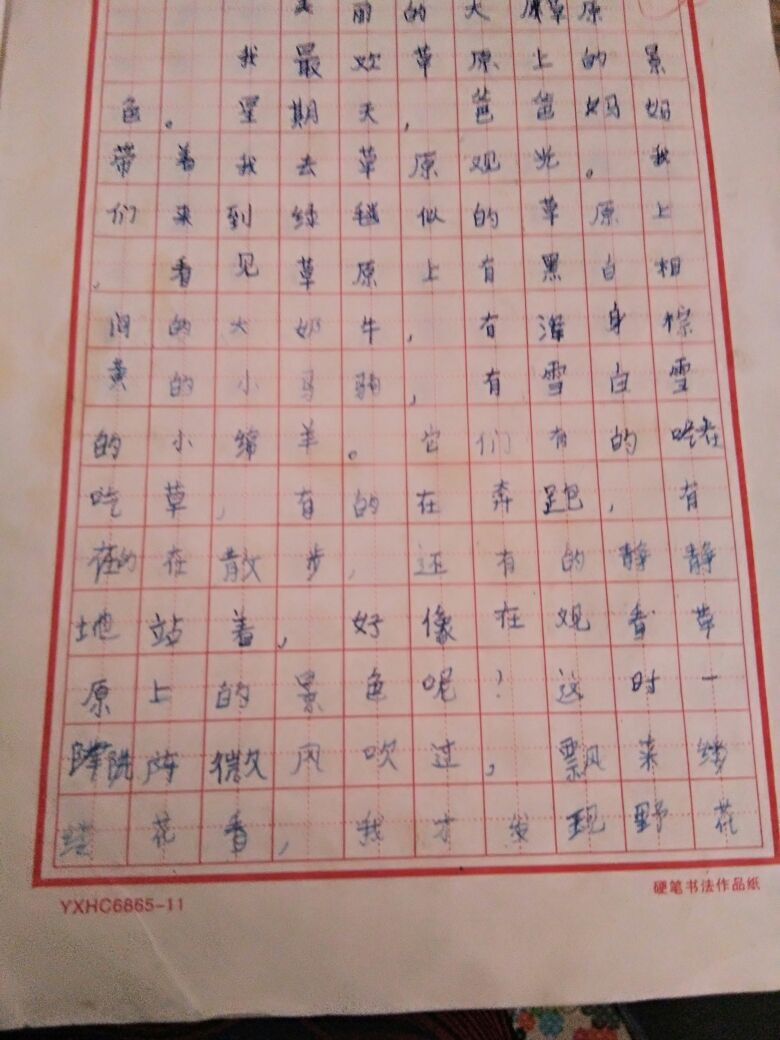 美丽的大草原
我最欢草原上的景
色。星期天,爸爸妈妈
带着我去草原观光。我
们来到绿毯似的草原上
,看见草原上有黑白相
间的大奶牛,有浑身棕
黄的小马驹,有雪白雪
的小绵羊。它们有的
吃草,有的在奔跑,有
的在散步,还有的静静
地站着,好像在观看草
原上的景色呢!这时一
阵阵微风吹过,飘来缕
缕花香,我才发现野花
YXHC6865-11
硬笔书法作品纸